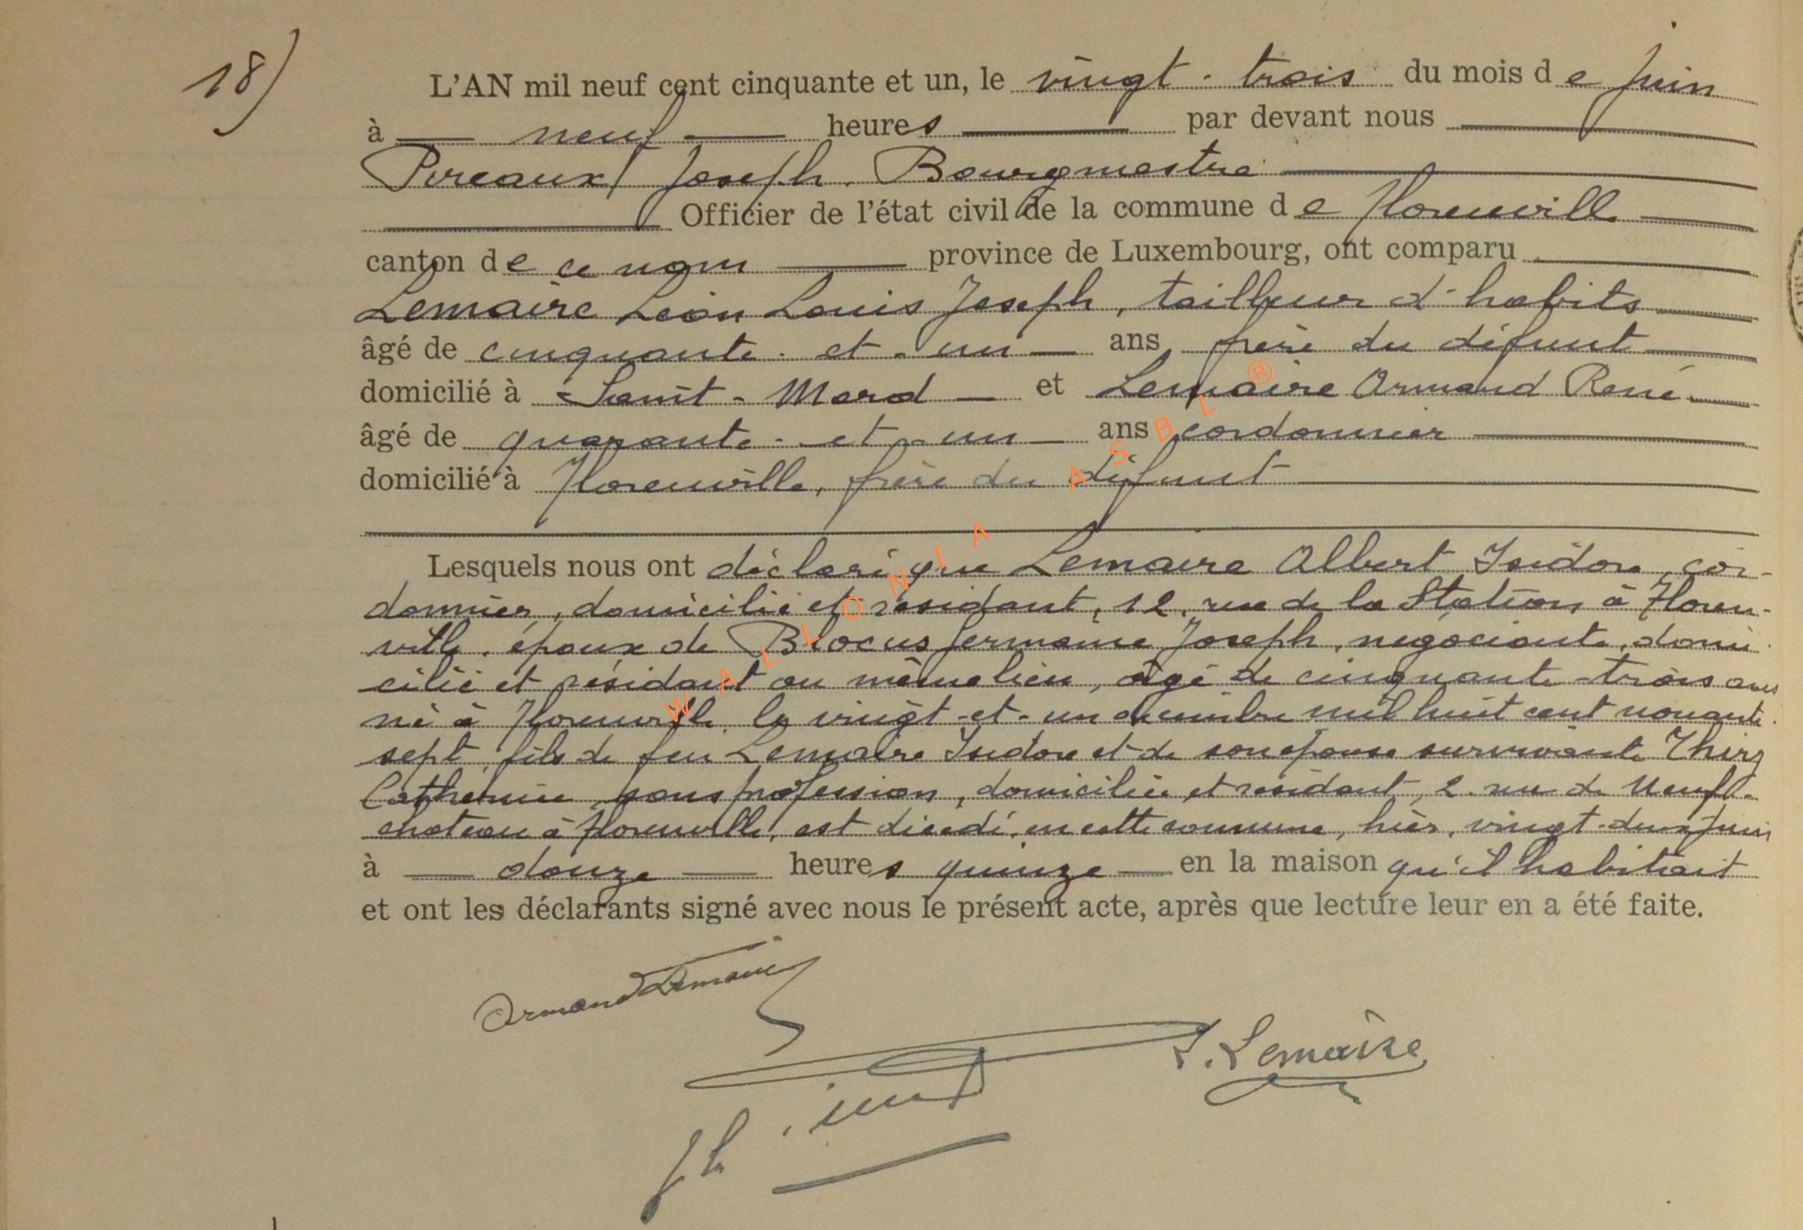 18)
L'AN mil neuf cent cinquante et un, le vingt-trois du mois de juin
à neuf heures par devant nous
Pireaux Joseph. Bourgmestre
Officier de l'état civil de la commune de Florenville
canton de ce nom province de Luxembourg, ont comparu
Lemaire Léon Louis Joseph, tailleur d'habits
âgé de cinquante-et-un ans frère du défunt
domicilié à Saint-Mard et Lemaire Armand René
âgé de quarante-et-un ans cordonnier
domicilié à Florenville, frère du défunt
Lesquels nous ont déclaré que Lemaire Albert Isidore, cor-
donnier, domicilié et résidant, 12, rue de la Station à Floren-
ville, époux de Blocus Germaine Joseph, négociante, domi-
cilié et résidant au même lieu, âgé de cinquante-trois ans
né à Florenville, le vingt-et-un décembre mil huit cent nonante
sept, fils de feu Lemaire Isidore et de son épouse survivante Thiry
Catherine sans profession, domiciliée et résidant, 2. rue de Neuf-
château à Florenville, est décédé, en cette commune, hier, vingt-deux juin
à douze heures quinze en la maison qu'il habitait
et ont les déclarants signé avec nous le présent acte, après que lecture leur en a été faite.
Armand Lemaire
L. Lemaire
WALLONIA ASBL ®